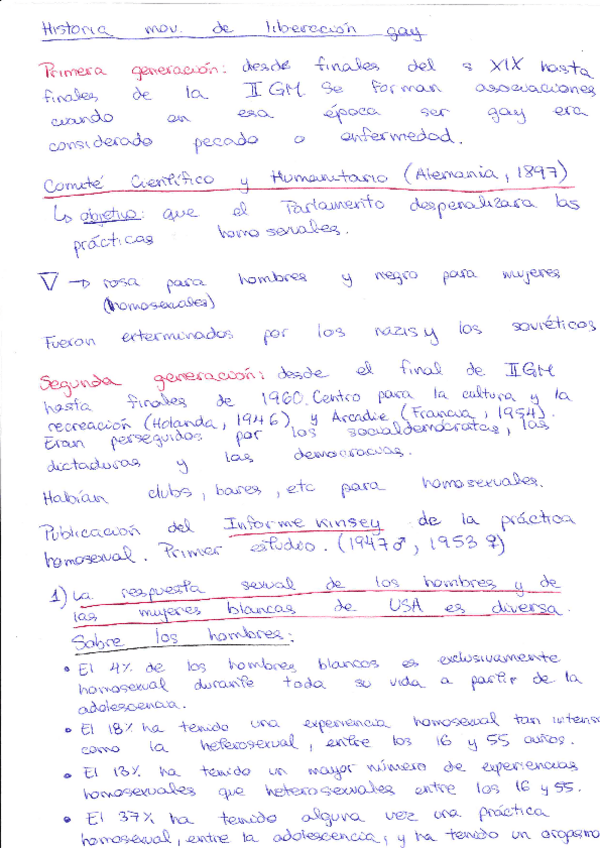 Historia mov. de liberación gay
Primera generación: desde finales del s XIX hasta
finales de la II GM. Se forman asociaciones
cuando en esa época ser gay era
considerado pecado o enfermedad.
Comité Científico y Humanitario (Alemania, 1897)
↳ objetivo: que el Parlamento despenalizara las
prácticas homosexuales.
▽ → rosa para hombres y negro para mujeres
(homosexuales)
Fueron exterminados por los nazis y los soviéticos
Segunda generación: desde el final de II GM
hasta finales de 1960. Centro para la cultura y la
recreación (Holanda, 1946) y Arcadie (Francia, 1954).
Eran perseguidos por los socialdemócratas, las
dictaduras y las democracias.
Habían clubs, bares, etc para homosexuales.
Publicación del Informe Kinsey de la práctica
homosexual. Primer estudio. (1947♂, 1953 ♀)
1) La respuesta sexual de los hombres y de
las mujeres blancas de USA es diversa.
Sobre los hombres:
• El 4% de los hombres blancos es exclusivamente
homosexual durante toda su vida a partir de la
adolescencia.
• El 18% ha tenido una experiencia homosexual tan intensa
como la heterosexual, entre los 16 y 55 años.
• El 13% ha tenido un mayor número de experiencias
homosexuales que heterosexuales entre los 16 y 55.
• El 37% ha tenido alguna vez una práctica
homosexual, entre la adolescencia, y ha tenido un orgasmo